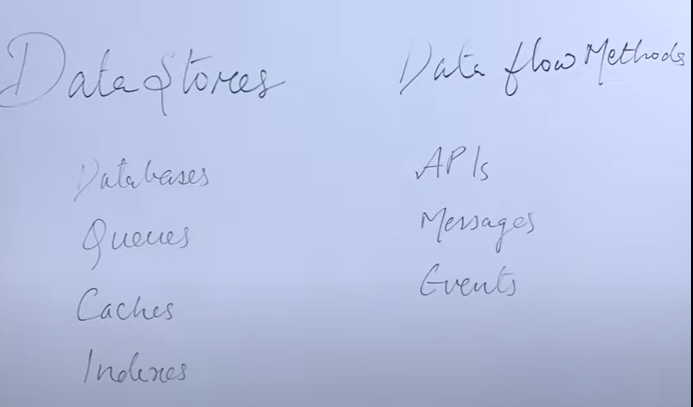 Data Stores
Databases
Queues
Caches
Indexes
Data flow Methods
APIs
Messages
Events